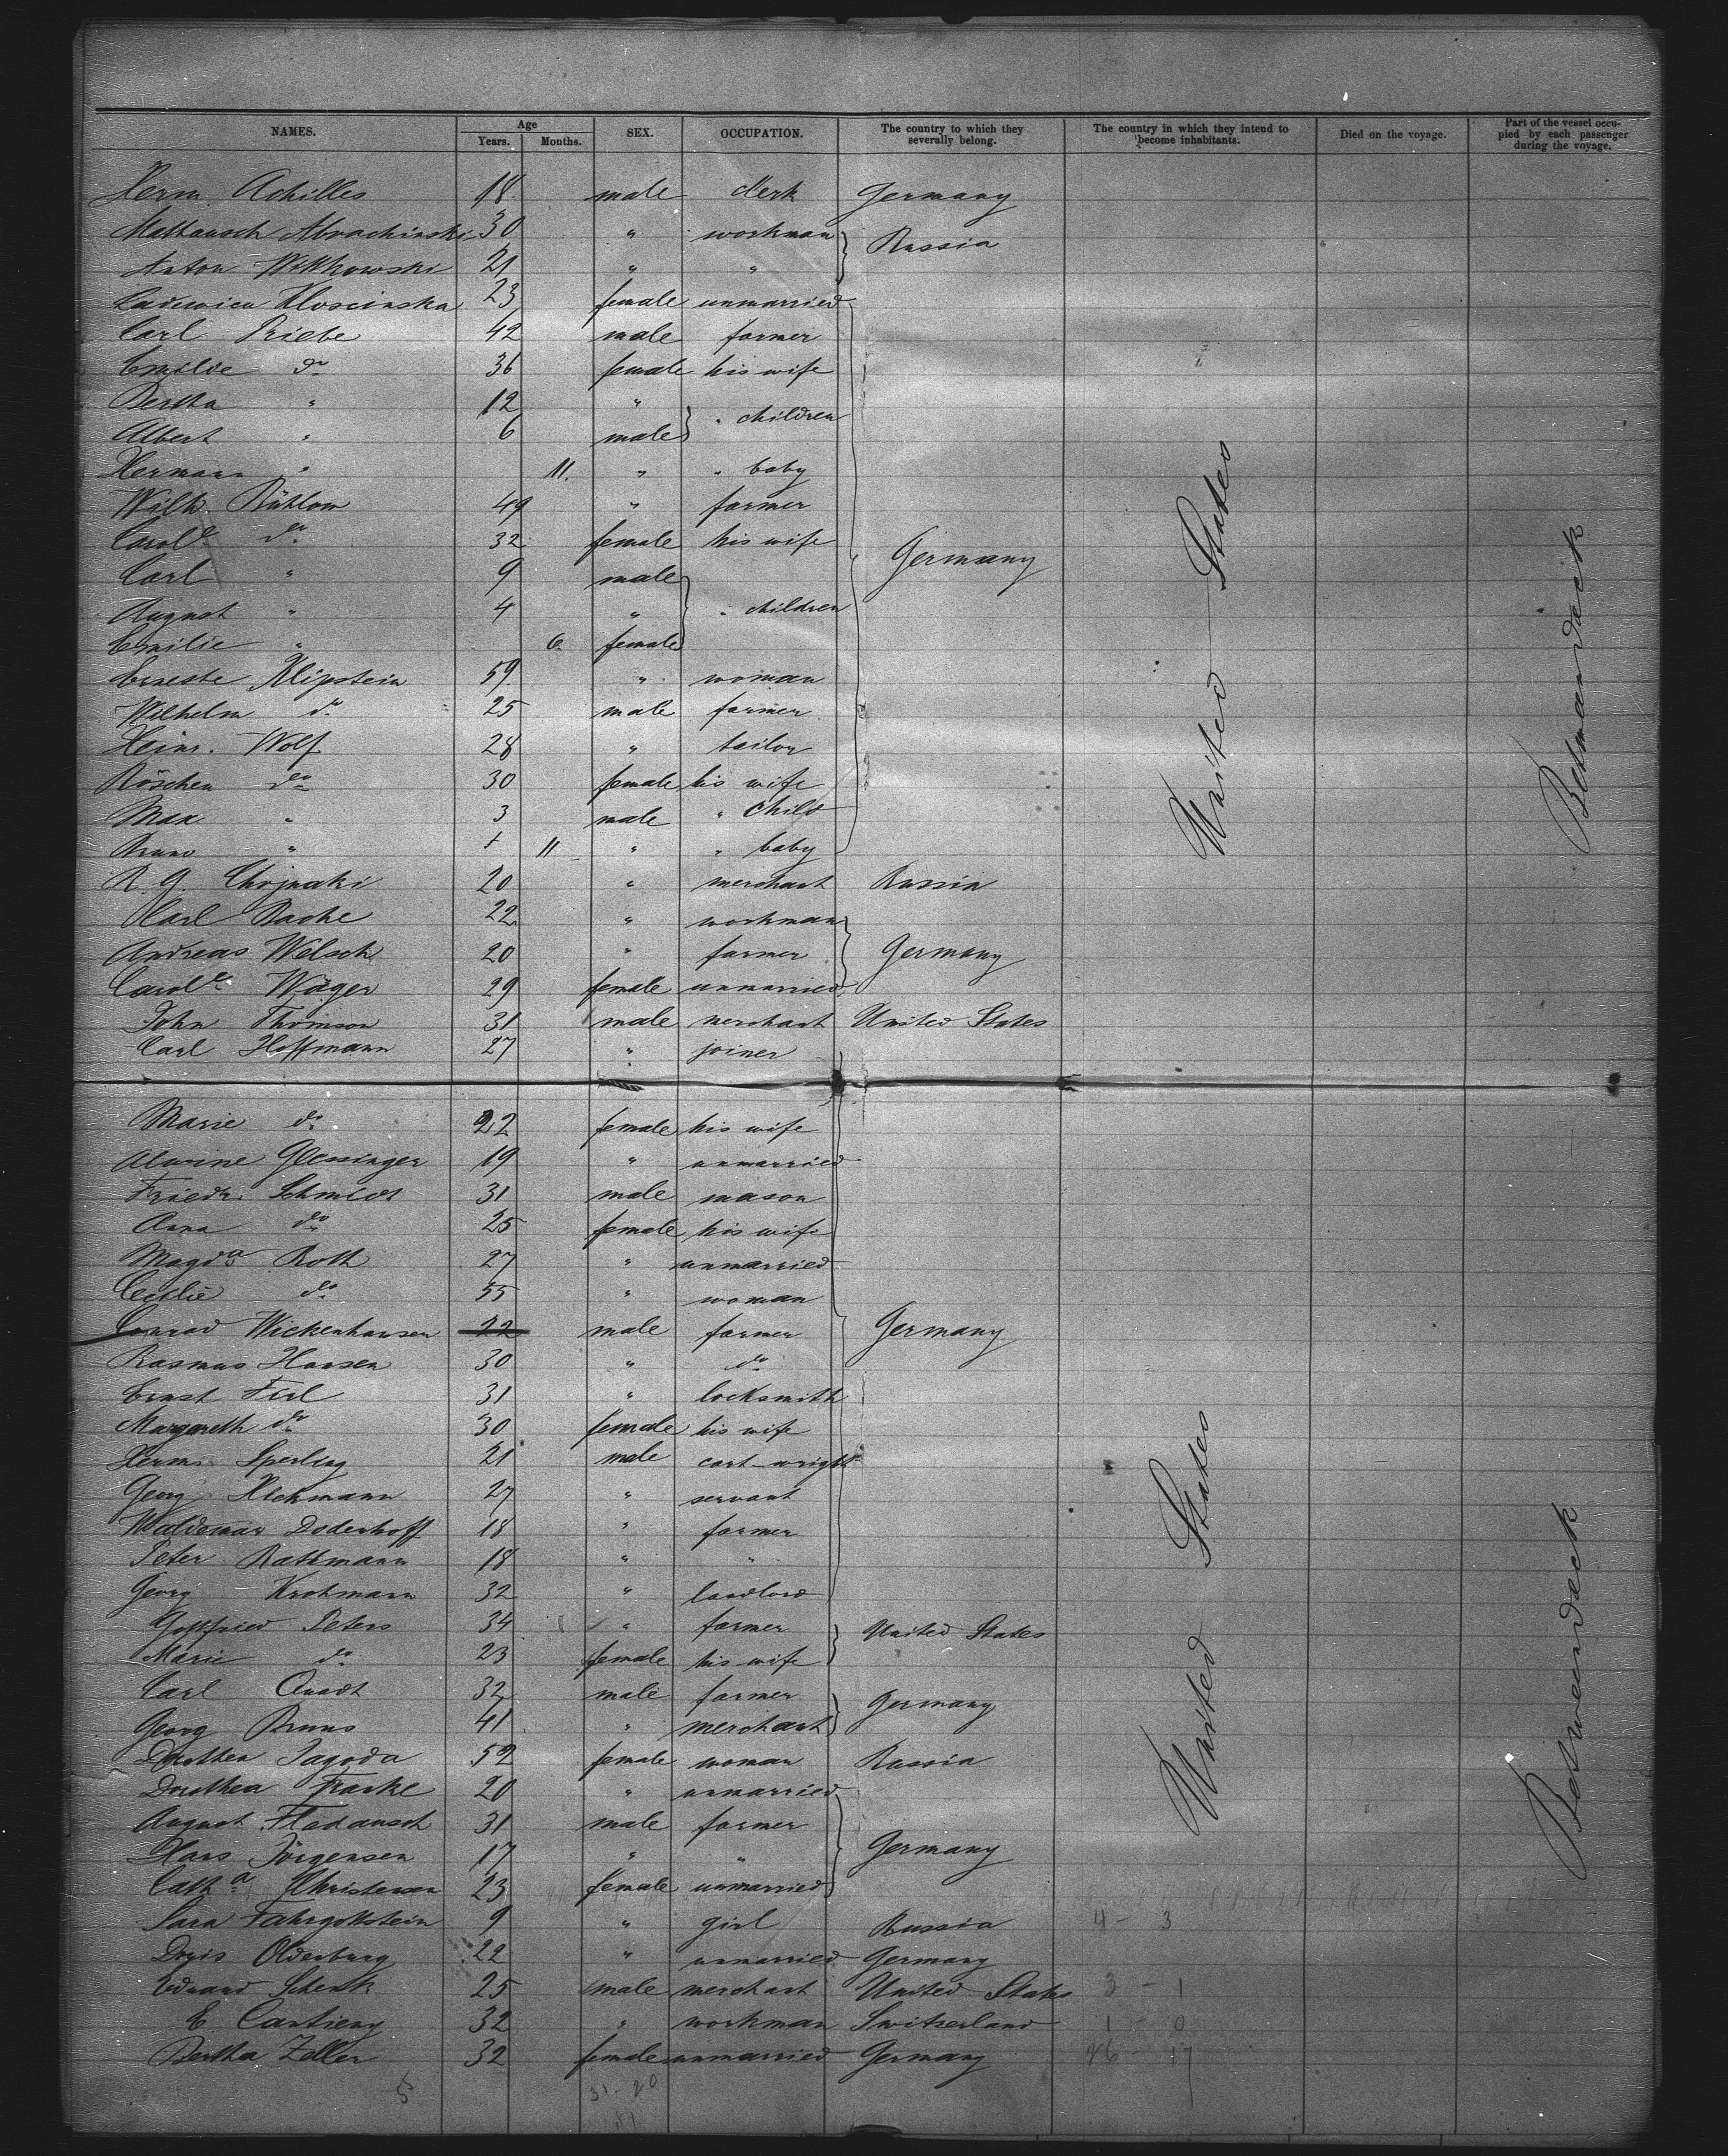 NAMES. Age Years. Months. SEX. OCCUPATION. The country to which they severally belong. The country in which they intend to become inhabitants. Died on the voyage. Part of the vessel occupied by each passenger during the voyage.
Herm. Achilles 18 male clerk Germany
30 " workman Russia
Anton Witkowski 21 " "
23 female unmarried
Carl Priebe 42 male farmer
Emilie do 36 female his wife
Bertha " 12 " " children
Albert " 6 male
Hermann " 11. " " baby
Wilh. Bühlow 49 " farmer
Carole do 32 female his wife Germany
Carl " 9 male
August " 4 " " children
Emilie " 6 female
Erneste Klipstein 59 " woman
Wilhelm do 25 male farmer
Heinr. Wolf 28 " tailor
Röschen do 30 female his wife
Max " 3 male " child
Bruno " 11 " " baby
R. G. 20 " merchant Russia
Carl Bache 22 " workman
Andreas Welsch 20 " farmer Germany
Carole Wäger 29 female unmarried
John Thomson 31 male merchant United States
Carl Hoffmann 27 " joiner
United States
Betweendeck
Marie do 22 female his wife
Alwine Glessinger 19 " unmarried
Friedr. Schmidt 31 male mason
Anna do 25 female his wife
Magda Roth 27 " unmarried
Cecilie do 55 " woman
Conrad Wickenhausen 22 male farmer Germany
Rasmus Hansen 30 " do
Ernst Fiel 31 " locksmith
Margareth do 30 female his wife
Herm. Sperling 21 male cart-wright
Georg Heckmann 27 " servant
Waldemar Doderhoff 18 " farmer
Peter Rathmann 18 " "
Georg Krohmann 32 " landlord
Gottfried Peters 34 " farmer United States
Marie do 23 female his wife
Carl Quadt 32 male farmer Germany
Georg Bruns 41 " merchant
Dorothea Jagoda 52 female woman Russia
Dorothea Franke 20 " unmarried
August 31 male farmer
Hans Jörgensen 17 " " Germany
Catha Christensen 23 female unmarried
Sara Fahrgottstein 9 " girl Russia 4 - 3
Doris Oldenburg 22 " unmarried Germany
Eduard Schenk 25 male merchant United States 3 - 1
E. Cantieny 32 " workman Switzerland 1 - 0
Bertha Zeller 32 female unmarried Germany 26 - 17
United States
Betweendeck
5 31 - 20
51